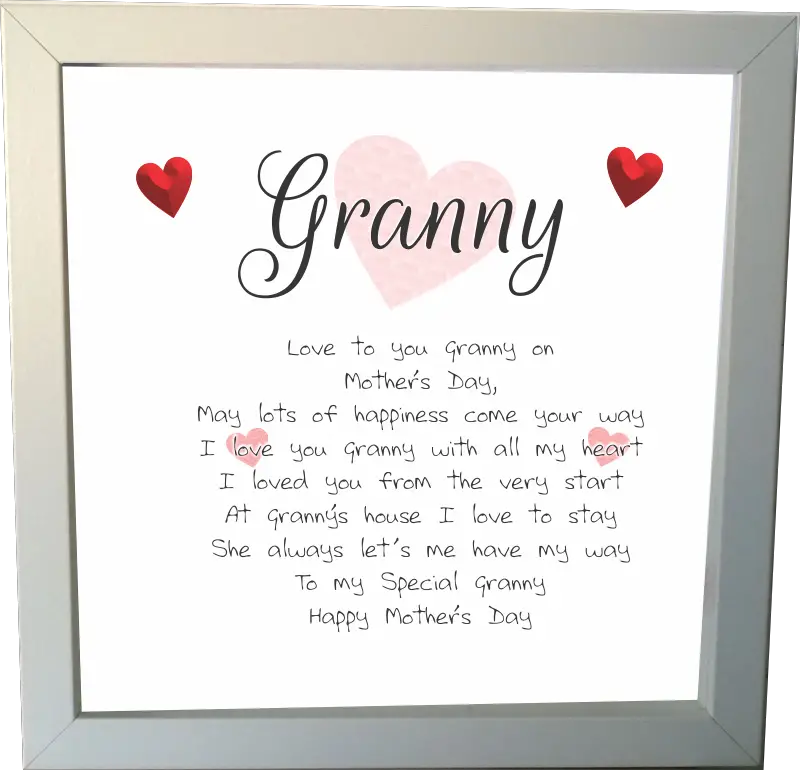 Granny
Love to you Granny on
Mother's Day,
May lots of happiness come your way
I love you Granny with all my heart
I loved you from the very start
At Granny's house I love to stay
She always let's me have my way
To my Special Granny
Happy Mother's Day